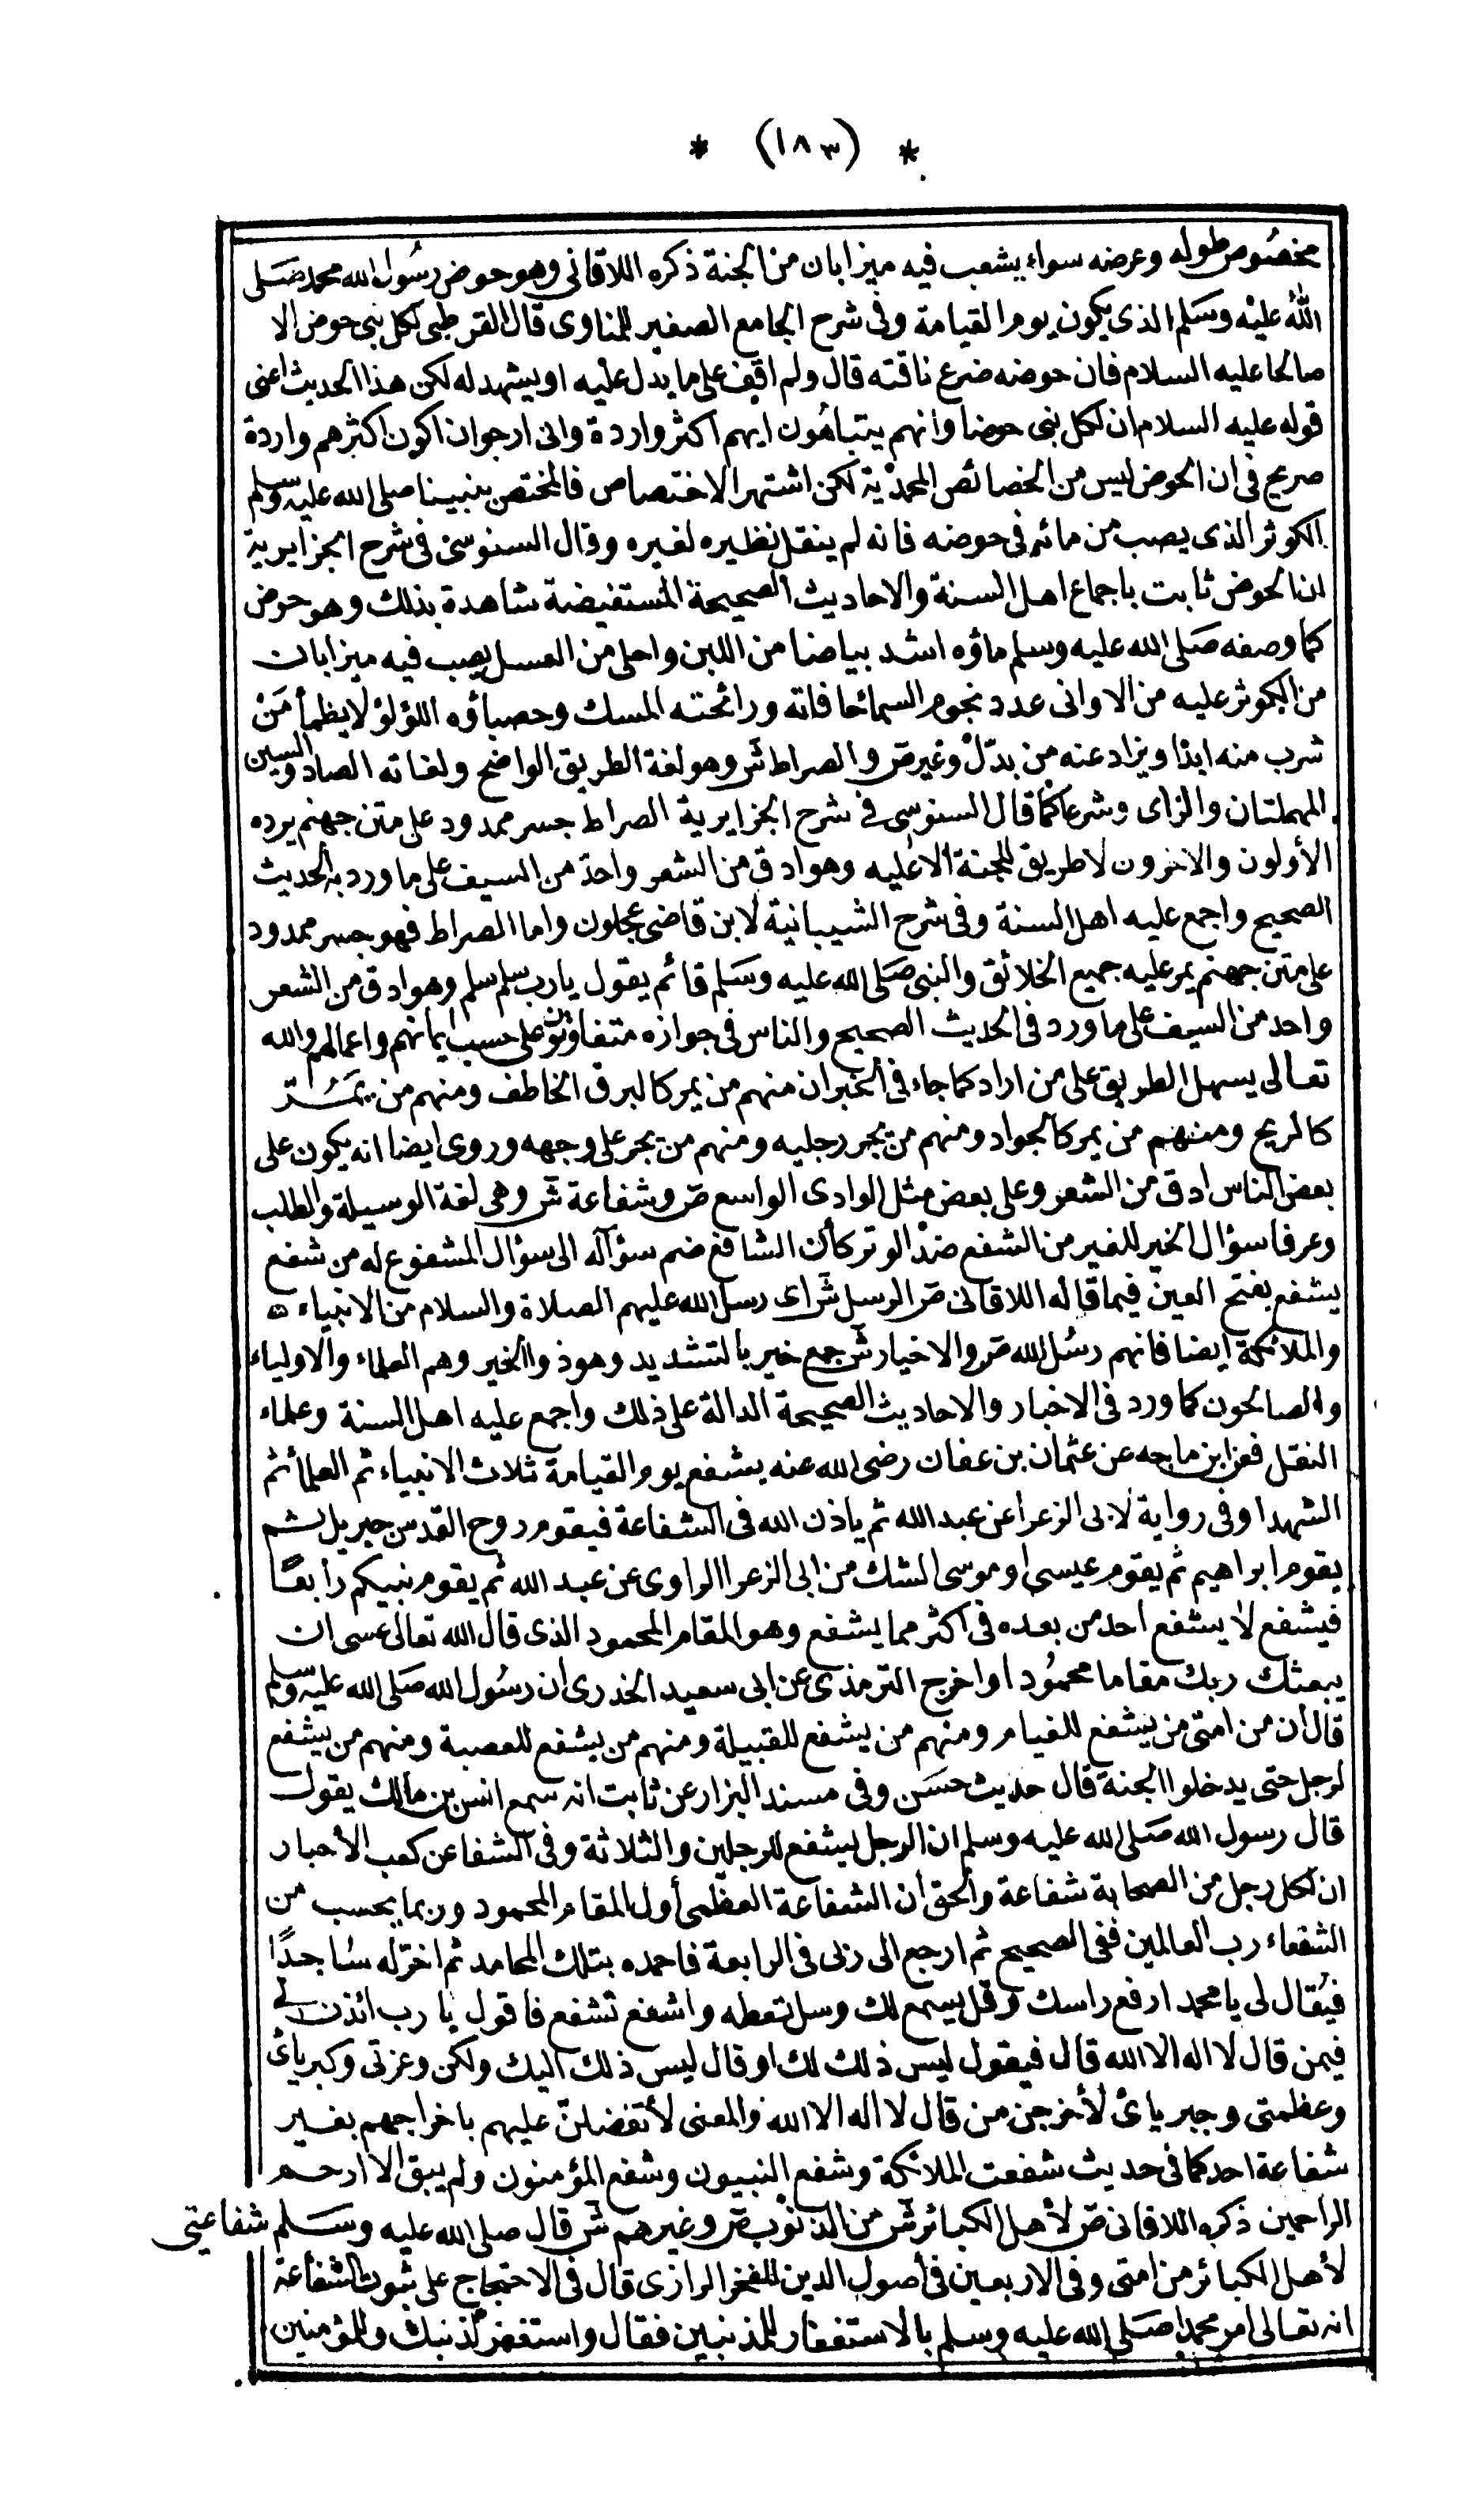 * (١٨٣) *
مخصوص طوله وعرضه سواء يشعب فيه ميزابان من الجنة ذكره اللاقاني وهو حوض رسول الله محمد صلى
الله عليه وسلم الذي يكون يوم القيامة وفي شرح الجامع الصغير للمناوى قال القرطبى لكل نبى حوض الا
صالحا عليه السلام فان حوضه ضرع ناقته قال ولم اقف على ما يدل عليه او يشهد له لكن هذا الحديث اعنى
قوله عليه السلام ان لكل نبى حوضا وانهم يتباهون ايهم اكثر واردة وانى ارجو ان اكون اكثرهم واردة
صريح فى ان الحوض ليس من الخصائص المحمدية لكن اشتهر الاختصاص فالمختص بنبينا صلى الله عليه وسلم
الكوثر الذى يصب من مائه فى حوضه فانه لم ينقل نظيره لغيره وقال السنوسى فى شرح الجزايرية
ان الحوض ثابت باجماع اهل السنة والاحاديث الصحيحة المستفيضة شاهدة بذلك وهو حوض
كما وصفه صلى الله عليه وسلم ماؤه اشد بياضا من اللبن واحلى من العسل يصب فيه ميزابان
من الكوثر عليه من الاوانى عدد نجوم السمائحافاته ورائحته المسك وحصباؤه اللؤلؤ لا يظمأ من
شرب منه ابدا ويزاد عنه من بدّل وغير ص والصراط ش وهو لغة الطريق الواضح ولغاته الصاد والسين
المهملتان والزاى وشرعا كما قال السنوسى فى شرح الجزايرية الصراط جسر ممدود على متن جهنم يرده
الأولون والآخرون لا طريق للجنة الا عليه وهو ادق من الشعر واحدّ من السيف على ما ورد به الحديث
الصحيح واجمع عليه اهل السنة وفى شرح الشيبانية لابن قاضى عجلون واما الصراط فهو جسر ممدود
على متن جهنم يمر عليه جميع الخلائق والنبى صلى الله عليه وسلم قائم يقول يارب سلم سلم وهو ادق من الشعر
واحد من السيف على ما ورد فى الحديث الصحيح والناس فى جوازه متفاوتون على حسب ايمانهم واعمالهم والله
تعالى يسهل الطريق على من اراد كما جاء فى الخبر ان منهم من يمر كالبرق الخاطف ومنهم من يمر
كالريح ومنهم من يمر كالجواد ومنهم من يجر رجليه ومنهم من يجر على وجهه وروى ايضا انه يكون على
بعض الناس ادق من الشعر وعلى بعض مثل الوادى الواسع ص وشفاعة ش وهى لغة الوسيلة والطلب
وعرفا سؤال الخير للغير من الشفع ضدّ الوتر كأن الشافع ضم سؤاله الى سؤال المشفوع له من شفع
يشفع بفتح العين فيما قاله اللاقانى ص الرسل ش اى رسل الله عليهم الصلاة والسلام من الانبياء
والملائكة ايضا فانهم رسل الله ص والاخيار ش جمع خير بالتشديد وهو ذو الخير وهم العلماء والاولياء
والصالحون كما ورد فى الاخبار والاحاديث الصحيحة الدالة على ذلك واجمع عليه اهل السنة وعلماء
النقل فعن ابن ماجه عن عثمان بن عفان رضى الله عنه يشفع يوم القيامة ثلاث الانبياء ثم العلما ثم
الشهدا وفى رواية لابى الزعرا عن عبد الله ثم ياذن الله فى الشفاعة فيقوم روح القدس جبريل ثم
يقوم ابراهيم ثم يقوم عيسى او موسى الشك من ابى الزعرا الراوى عن عبد الله ثم يقوم نبيكم رابعا
فيشفع لا يشفع احد من بعده فى اكثر مما يشفع وهو المقام المحمود الذى قال الله تعالى عسى ان
يبعثك ربك مقاما محمودا واخرج الترمذى عن ابى سعيد الخدرى ان رسول الله صلى الله عليه وسلم
قال ان من امتى من يشفع للفيام ومنهم من يشفع للقبيلة ومنهم من يشفع للعصبة ومنهم من يشفع
لرجل حتى يدخلوا الجنة قال حديث حسن وفى مسند البزار عن ثابت انه سمع انس بن مالك يقول
قال رسول الله صلى الله عليه وسلم ان الرجل ليشفع للرجلين والثلاثة وفى الشفا عن كعب الأحبار
ان لكل رجل من الصحابة شفاعة والحق ان الشفاعة العظمى أول المقام المحمود وربما يحسب من
الشفعاء رب العالمين ففى الصحيح ثم ارجع الى ربى فى الرابعة فاحمده بتلك المحامد ثم اخرّ له ساجدًا
فيُقال لى يا محمد ارفع راسك وقل يسمع لك وسل تعطه واشفع تشفع فاقول يا رب ائذن لى
فيمن قال لا اله الا الله قال فيقول ليس ذلك لك او قال ليس ذلك اليك ولكن وعزتى وكبريائ
وعظمتى وجبريائ لأخرجن من قال لا اله الا الله والمعنى لأتفضلنّ عليهم باخراجهم بغير
شفاعة احد كما فى حديث شفعت الملائكة وشفع النبيون وشفع المؤمنون ولم يبق الا ارحم
الراحمين ذكره اللاقانى ص لأهل الكبائر ش من الذنوب ص وغيرهم ش قال صلى الله عليه وسلم شفاعتى
لأهل الكبائر من امتى وفى الاربعين فى أصول الدين للفخر الرازى قال فى الاحتجاج على ثبوت الشفاعة
انه تعالى امر محمدا صلى الله عليه وسلم بالاستغفار للمذنبين فقال واستغفر لذنبك وللمؤمنين